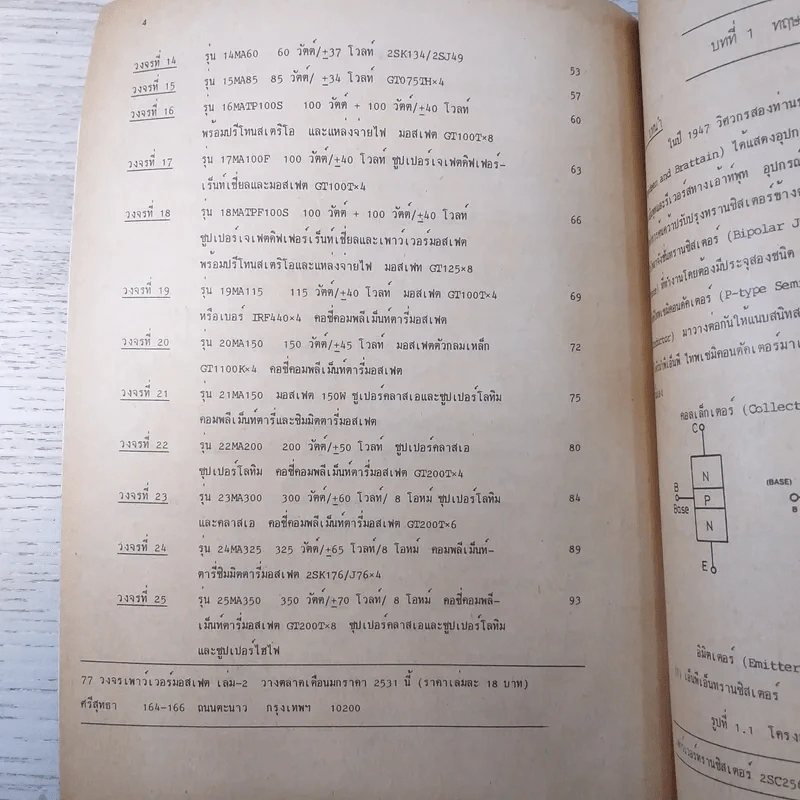 4
วงจรที่ 14 รุ่น 14MA60 60 วัตต์/±37 โวลท์ 2SK134/2SJ49 53
วงจรที่ 15 รุ่น 15MA85 85 วัตต์/±34 โวลท์ GT075TH×4 57
วงจรที่ 16 รุ่น 16MATP100S 100 วัตต์ + 100 วัตต์/±40 โวลท์ 60
พร้อมปรีโทนสเตริโอ และแหล่งจ่ายไฟ มอสเฟต GT100T×8
วงจรที่ 17 รุ่น 17MA100F 100 วัตต์/±40 โวลท์ ซูปเปอร์เจเฟตดิฟเฟอร์- 63
เร็นท์เชี่ยลและมอสเฟต GT100T×4
วงจรที่ 18 รุ่น 18MATPF100S 100 วัตต์ + 100 วัตต์/±40 โวลท์ 66
ซูปเปอร์เจเฟตดิฟเฟอร์เร็นท์เชี่ยลและเพาว์เวอร์มอสเฟต
พร้อมปรีโทนสเตริโอและแหล่งจ่ายไฟ มอสเฟท GT125×8
วงจรที่ 19 รุ่น 19MA115 115 วัตต์/±40 โวลท์ มอสเฟต GT100T×4 69
หรือเบอร์ IRF440×4 คอซี่คอมพลีเม็นท์ตารี่มอสเฟต
วงจรที่ 20 รุ่น 20MA150 150 วัตต์/±45 โวลท์ มอสเฟตตัวกลมเหล็ก 72
GT1100K×4 คอซี่คอมพลีเม็นท์ตารี่มอสเฟต
วงจรที่ 21 รุ่น 21MA150 มอสเฟต 150W ซูเปอร์คลาสเอและซูปเปอร์โลทิม 75
คอมพลีเม็นท์ตารี่และซิมมิตตารี่มอสเฟต
วงจรที่ 22 รุ่น 22MA200 200 วัตต์/±50 โวลท์ ซูปเปอร์คลาสเอ 80
ซุปเปอร์โลทิม คอซี่คอมพลีเม็นท์ตารี่มอสเฟต GT200T×4
วงจรที่ 23 รุ่น 23MA300 300 วัตต์/±60 โวลท์/ 8 โอหม์ ซุปเปอร์โลทิม 84
และคลาสเอ คอซี่คอมพลีเม็นท์ตารี่มอสเฟต GT200T×6
วงจรที่ 24 รุ่น 24MA325 325 วัตต์/±65 โวลท์/8 โอหม์ คอมพลีเม็นท์- 89
ตารี่ซิมมิตตารี่มอสเฟต 2SK176/J76×4
วงจรที่ 25 รุ่น 25MA350 350 วัตต์/±70 โวลท์/ 8 โอหม์ คอซี่คอมพลี- 93
เม็นท์ตารี่มอสเฟต GT200T×8 ซุปเปอร์คลาสเอและซูปเปอร์โลทิม
และซูปเปอร์ไฮไฟ
77 วงจรเพาว์เวอร์มอสเฟต เล่ม-2 วางตลาดเดือนมกราคา 2531 นี้ (ราคาเล่มละ 18 บาท)
ศรีสุทธา 164-166 ถนนตะนาว กรุงเทพฯ 10200
บทที่ 1
ในปี 1947 วิศวกรสองท่าน
and Brattain) ได้แสดงอุปก
(Bipolar J
ที่ทำงานโดยต้องมีประจุสองชนิด
(P-type Semi
มาวางต่อกันให้แนบสนิท
คอลเล็กเตอร์ (Collect
C
N
P
N
B
Base
E
(BASE)
B
อิมิตเตอร์ (Emitter
เอ็นพีเอ็นทรานซิสเตอร์
รูปที่ 1.1 โครง
ทรานซิสเตอร์ 2SC256